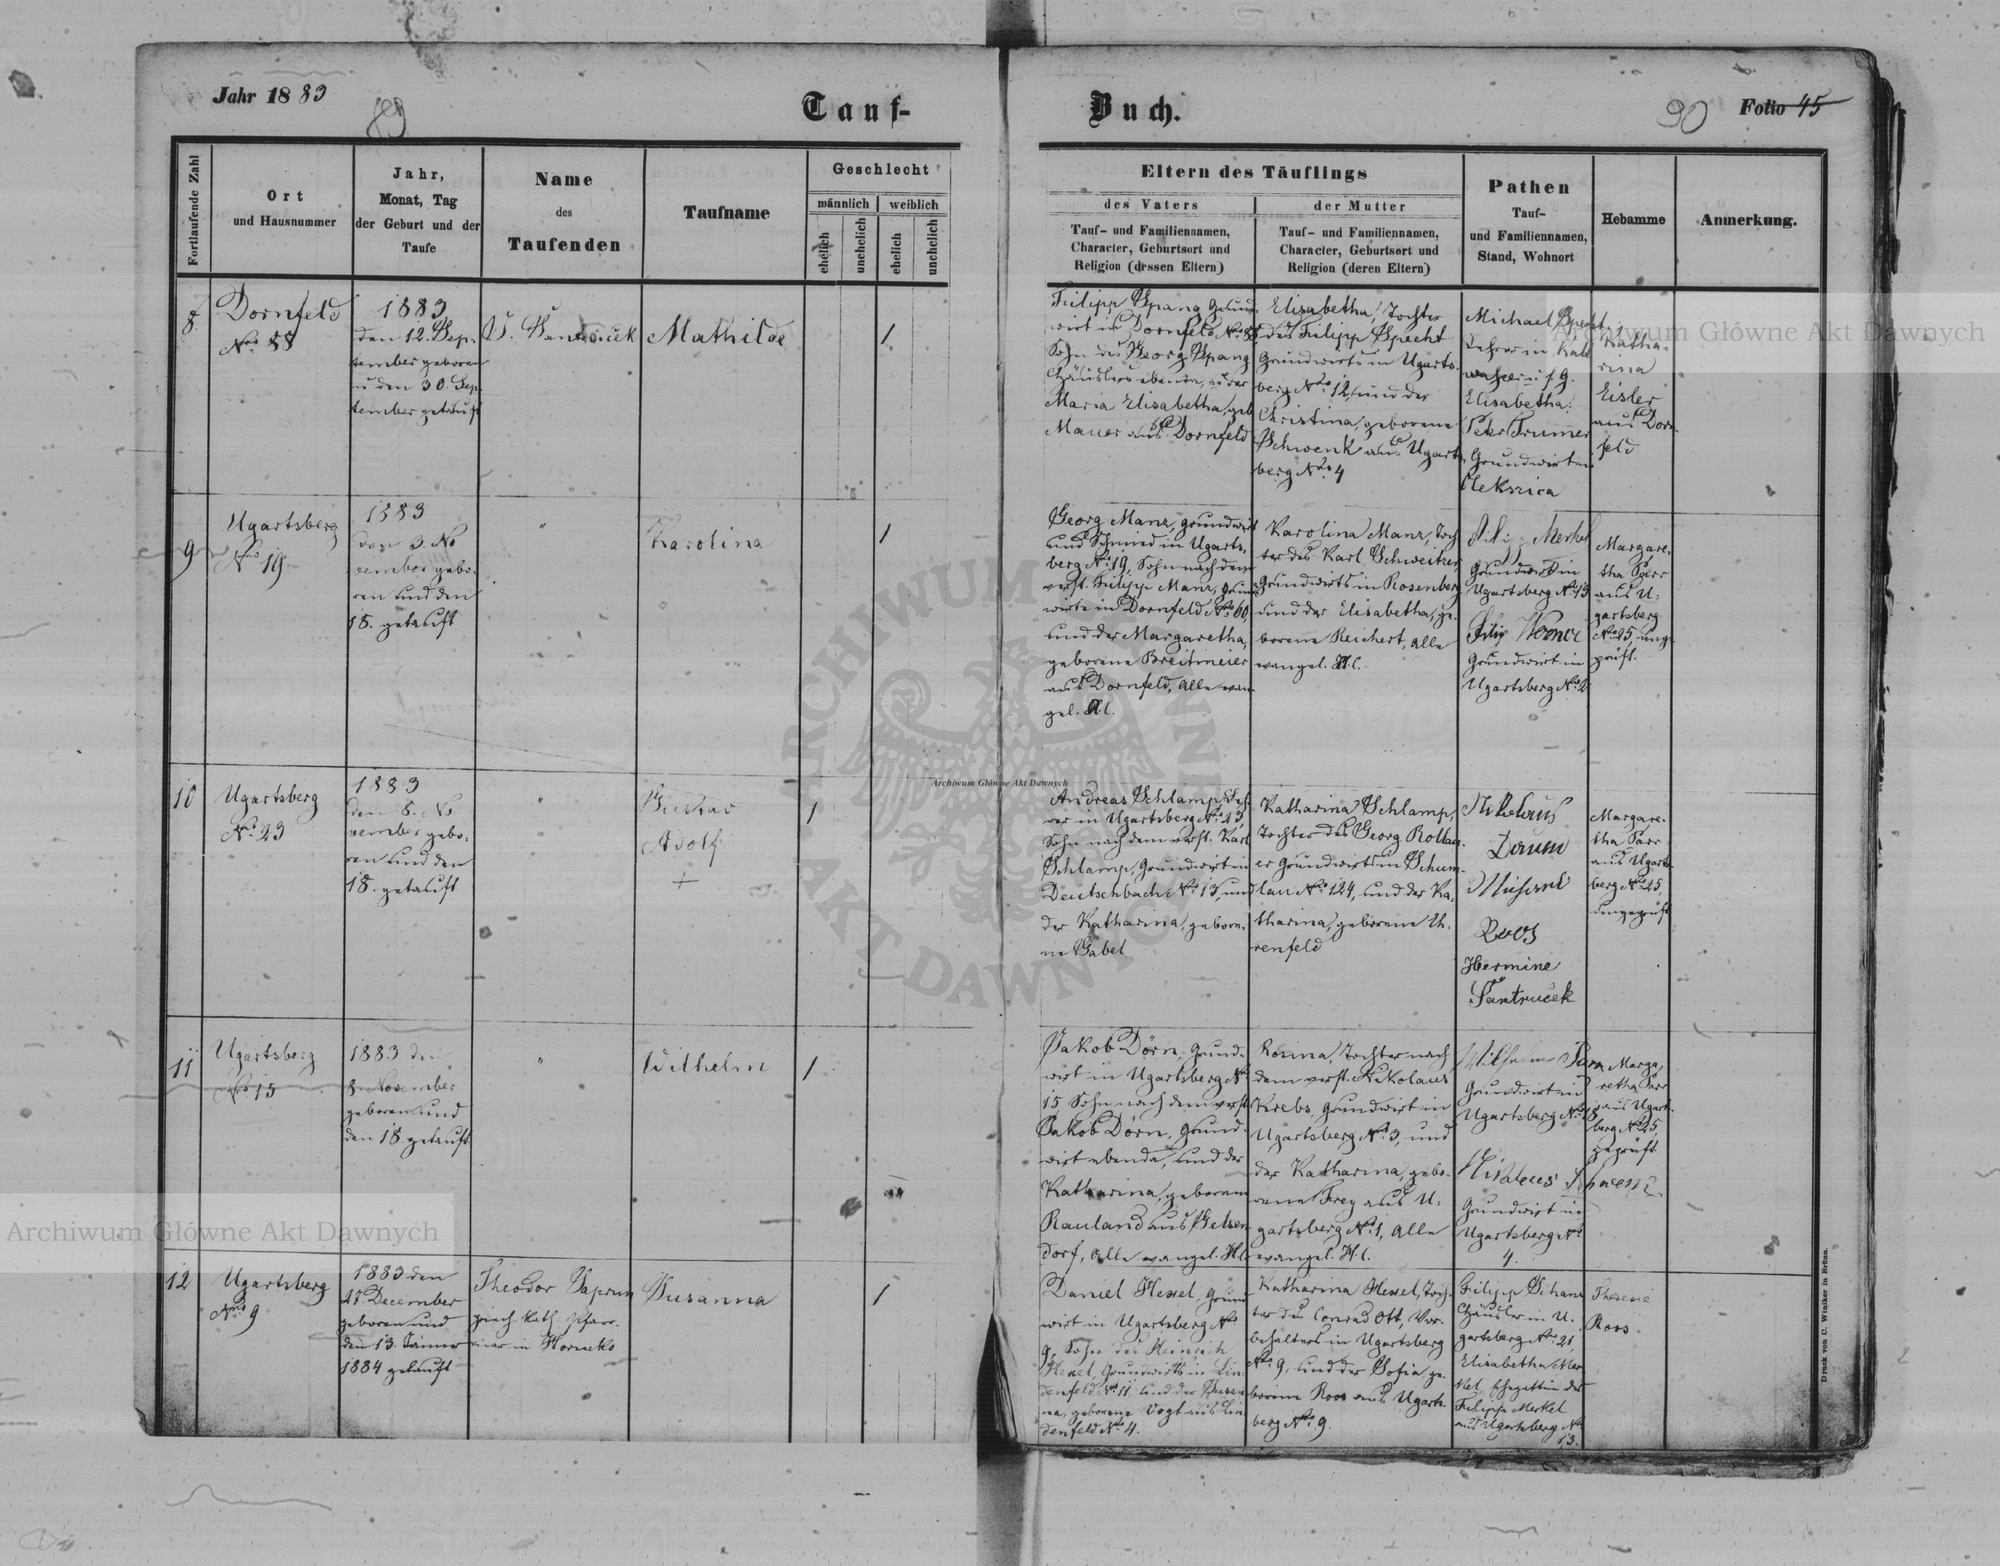 Jahr 1883
89
Tauf-
Buch.
90
Folio 45
Fortlaufende Zahl
Ort
und Hausnummer
Jahr,
Monat, Tag
der Geburt und der
Taufe
Name
des
Taufenden
Taufname
Geschlecht
männlich
weiblich
ehelich
unehelich
ehelich
unehelich
Eltern des Täuflings
des Vaters
Tauf- und Familiennamen,
Character, Geburtsort und
Religion (dessen Eltern)
der Mutter
Tauf- und Familiennamen,
Character, Geburtsort und
Religion (deren Eltern)
Pathen
Tauf-
und Familiennamen,
Stand, Wohnort
Hebamme
Anmerkung.
8.
Dornfeld
No 88
1883
den 12. Sep-
tember geboren
u den 30. Sep-
tember getauft
Mathilde
1
Filipp Spang Grund-
wirt in Dornfeld, No 88
Sohn des Georg Spang
Häuslers ebenda, u. der
Maria Elisabetha, geb
Mauer aus Dornfeld
Elisabetha, Tochter
des Filipp Specht
Grundwirts in Ugarts-
berg No 12, und der
Christina, geborene
Schwenk aus Ugarts-
berg No 4
Michael Specht
Lehrer in
Elisabetha.
Peter Trumer
Grundwirt in
Katha-
rina
Eisler
aus Dorn-
feld
9
Ugartsberg
No 19
1883
den 3. No
vember gebo-
ren und den
18. getauft
"
Karolina
1
Georg Manz, Grundwirt
und Schmied in Ugarts-
berg No 19, Sohn nach dem
verst. Filipp Manz, Grund-
wirts in Dornfeld No 60,
und der Margaretha,
geborene Breitmeier
aus Dornfeld, alle evan-
gel. H.C.
Karolina Manz, Toch-
ter des Karl Schweitzer
Grundwirts in Rosenberg
und der Elisabetha, ge-
borene Reichert, alle
evangel. H.C.
Merkel
Grundwirt in
Ugartsberg No 13
Filip
Grundwirt in
Ugartsberg No 2
Margare-
tha Parr
aus U-
gartsberg
No 25, unge-
prüft.
10
Ugartsberg
No 23
1883
den 8. No
vember gebo-
ren und den
18. getauft
"
Gustav
Adolf
+
1
Andreas Schlamp, Leh-
rer in Ugartsberg No 23,
Sohn nach dem verst. Karl
Schlamp, Grundwirt in
Deutschbach No 13, und
der Katharina, gebore-
ne Gabel
Katharina Schlamp,
Tochter des Georg
er Grundwirts in Schum-
lau No 124, und der Ka-
tharina, geborene Eh-
renfeld
Nikolaus
Daum
Roos
Hermine
Santruček
Margare-
tha Parr
aus Ugarts-
berg No 25,
ungeprüft
11
Ugartsberg
No 15
1883 den
8. November
geboren und
den 18. getauft
"
Wilhelm
1
Jakob Dörn, Grund-
wirt in Ugartsberg No
15, Sohn nach dem verst.
Jakob Dörn, Grund-
wirt ebenda, und der
Katharina, geborene
Rauland aus Gelsen-
dorf, alle evangel. H.C.
Rosina, Tochter nach
dem verst. Nikolaus
Krebs, Grundwirt in
Ugartsberg No 3, und
der Katharina, gebo-
rene Frey aus U-
gartsberg No 1, alle
evangel. H.C.
Wilhelm Parr
Grundwirt in
Ugartsberg No 18
Grundwirt in
Ugartsberg No
4.
Marga-
retha Parr
aus Ugarts-
berg No 25,
geprüft
12
Ugartsberg
No 9
1883 den
27. December
geboren und
den 13. Jänner
1884 getauft
Theodor Saprun
griech. kath. Pfarr-
Susanna
1
Daniel Hexel, Grund-
wirt in Ugartsberg No
9, Sohn des Heinrich
Hexel, Grundwirts in Lin-
denfeld No 11, und der Susan-
na, geborene Vogt aus Lin-
denfeld No 4.
Katharina Hexel, Toch-
ter des Conrad Ott, Vor-
behälters in Ugartsberg
No 9, und der Sofia ge-
borene Roos aus Ugarts-
berg No 9.
Filipp Schanz
Häusler in U-
gartsberg No 21,
Elisabetha Mer-
kel, Ehegattin des
Filipp Merkel
aus Ugartsberg No
13.
Roos
Druck von C. Winiker in Brünn.
Archiwum Główne Akt Dawnych
Archiwum Główne Akt Dawnych
Archiwum Główne Akt Dawnych
ARCHIWUM GŁÓWNE
AKT DAWNYCH